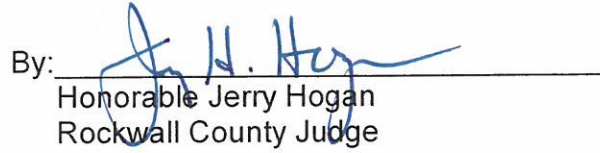 By:
Honorable Jerry Hogan
Rockwall County Judge